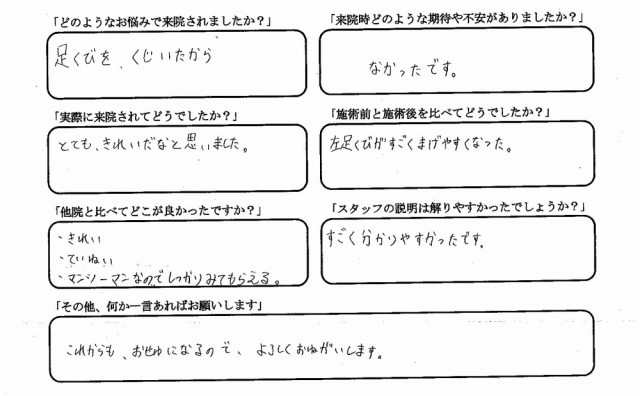 「どのようなお悩みで来院されましたか？」
足くびを、くじいたから
「来院時どのような期待や不安がありましたか？」
なかったです。
「実際に来院されてどうでしたか？」
とても、きれいだなと思いました。
「施術前と施術後を比べてどうでしたか？」
左足くびがすごくまげやすくなった。
「他院と比べてどこが良かったですか？」
・きれい
・ていねい
・マンツーマンなのでしっかりみてもらえる。
「スタッフの説明は解りやすかったでしょうか？」
すごく分かりやすかったです。
「その他、何か一言あればお願いします」
これからも、おせわになるので、よろしくおねがいします。